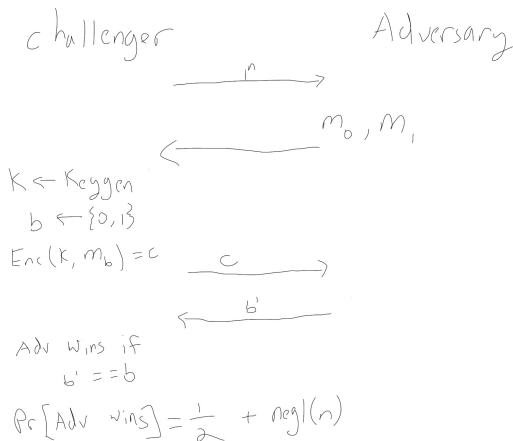 challenger Adversary
1ⁿ
m₀, m₁
K ← Keygen
b ← {0,1}
Enc(K, m_b) = c
c
b'
Adv wins if
b' == b
Pr[Adv wins] = 1/2 + negl(n)